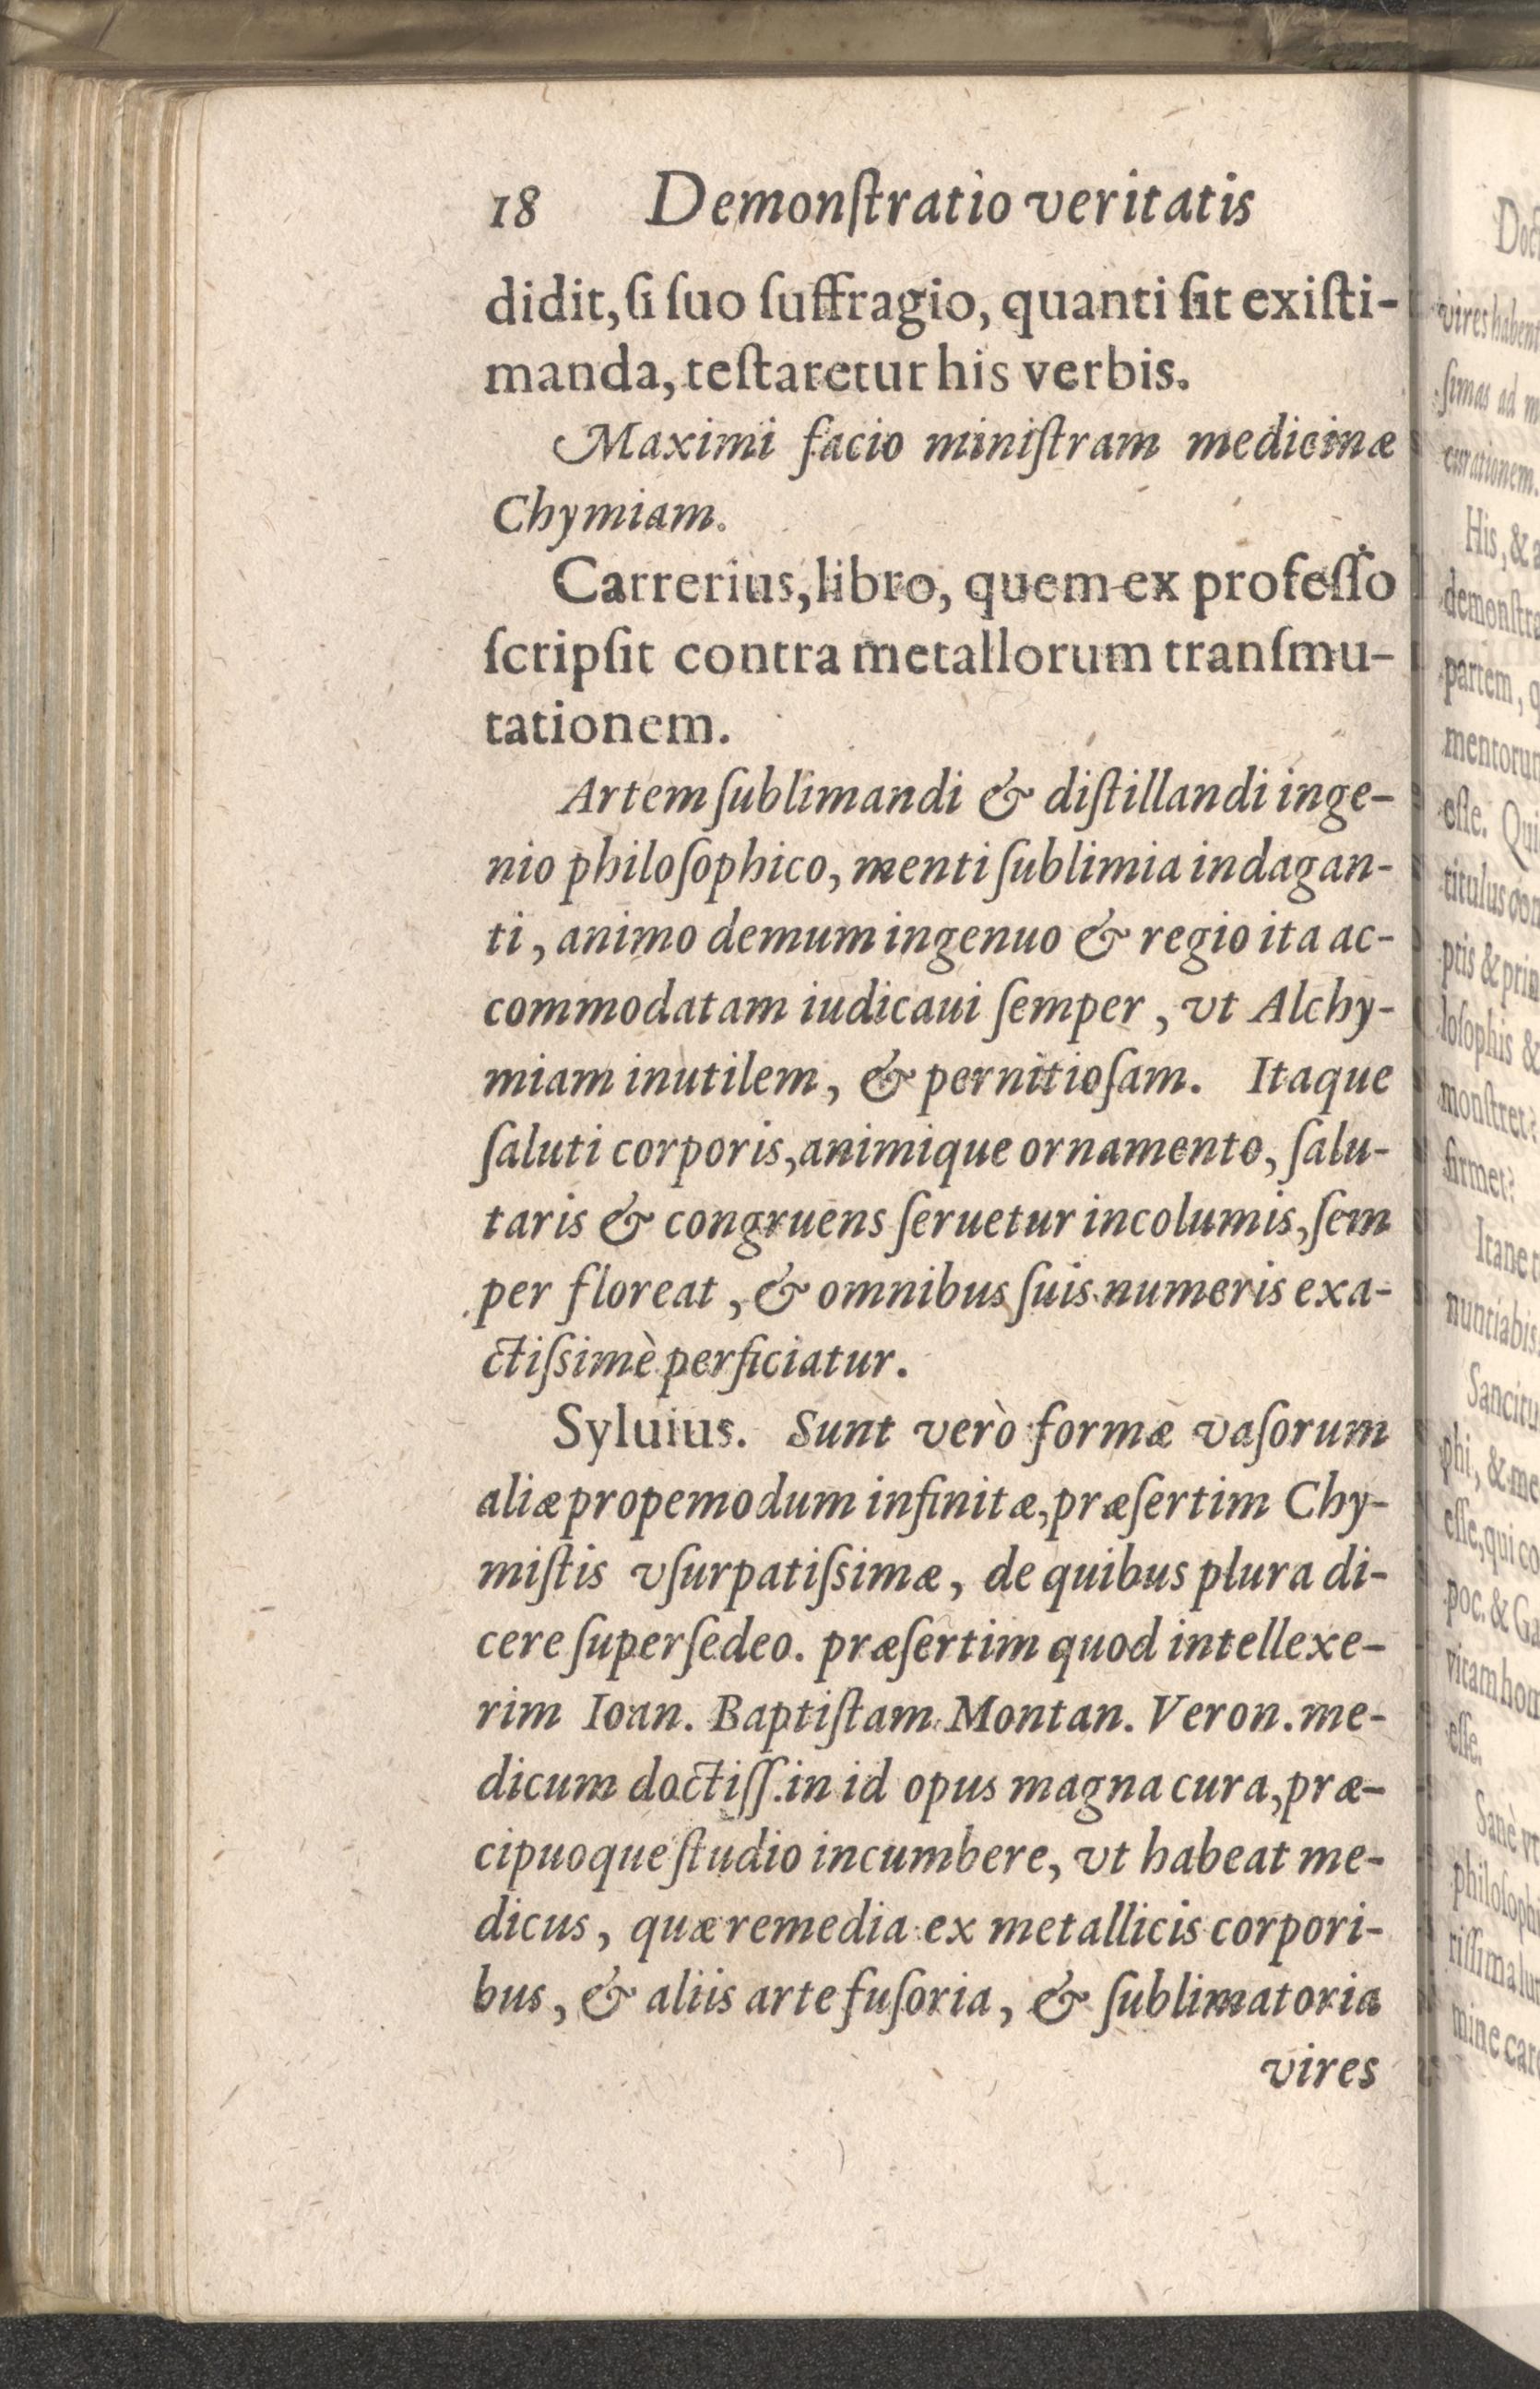 18 Demonſtratio veritatis
didit, ſi ſuo ſuffragio, quanti ſit exiſti-
manda, teſtaretur his verbis.
Maximi facio miniſtram medicinæ
Chymiam.
Carrerius, libro, quem ex profeſſo
ſcripſit contra metallorum tranſmu-
tationem.
Artem ſublimandi & diſtillandi inge-
nio philoſophico, menti ſublimia indagan-
ti, animo demum ingenuo & regio ita ac-
commodatam iudicaui ſemper, vt Alchy-
miam inutilem, & pernitioſam. Itaque
ſaluti corporis, animique ornamento, ſalu-
taris & congruens ſeruetur incolumis, ſem
per floreat, & omnibus ſuis numeris exa-
ctiſsimè perficiatur.
Syluius. Sunt verò formæ vaſorum
aliæ propemodum infinitæ, præſertim Chy-
miſtis vſurpatiſsimæ, de quibus plura di-
cere ſuperſedeo. præſertim quod intellexe-
rim Ioan. Baptiſtam Montan. Veron. me-
dicum doctiſſ. in id opus magna cura, præ-
cipuoque ſtudio incumbere, vt habeat me-
dicus, quæ remedia ex metallicis corpori-
bus, & aliis arte fuſoria, & ſublimatoria
vires
vires habent
ſimas ad
curationem.
His, &
demonſtra
partem,
mentorum
eſſe. Qui
titulus
ptis & prin
loſophis &
monſtret?
firmet?
Itane
nuntiabis
Sancitu
phi, & me
eſſe, qui co
poc. & Ga
vitam hom
eſſe.
Sanè vt
philoſophi
riſſima lu
mine care